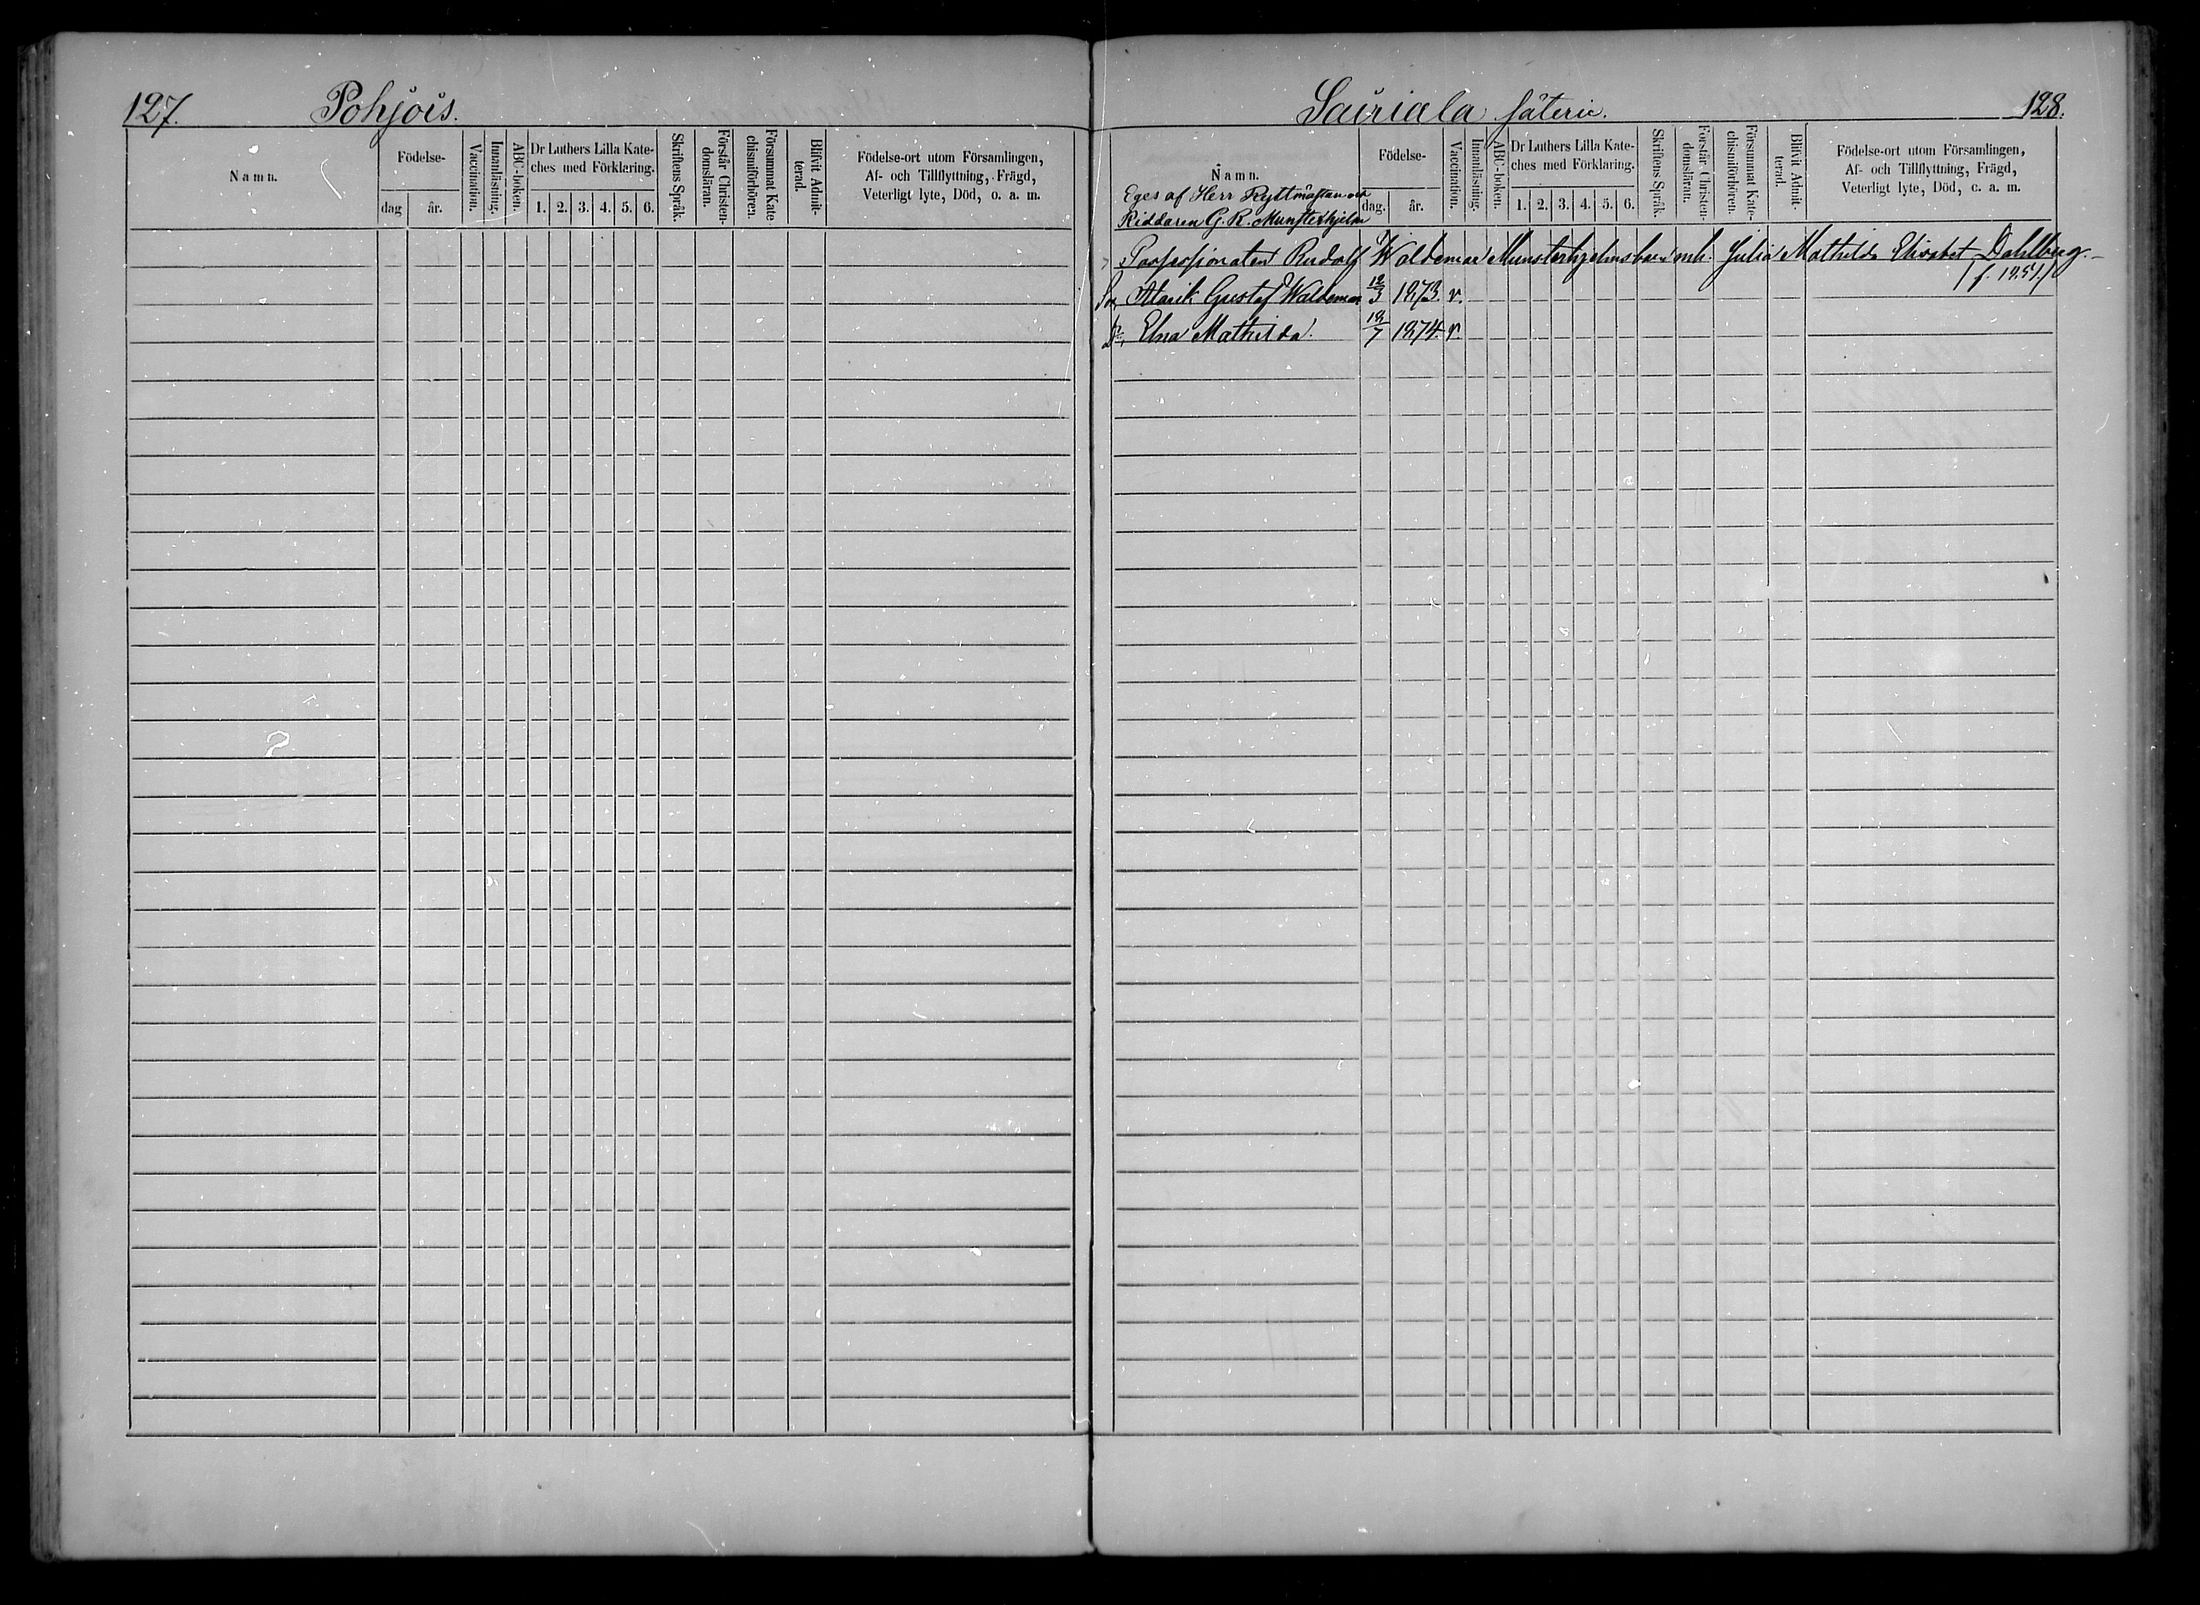 127.
Pohjois.
Namn.
Födelse-
dag
år.
Vaccination.
Innanläsning.
ABC-boken.
Dr Luthers Lilla Kate-
ches med Förklaring.
1. 2. 3. 4. 5. 6.
Skriftens Språk.
Förstår Christen-
domsläran.
Försummat Kate-
chismiförhören.
Blifvit Admit-
terad.
Födelse-ort utom Församlingen,
Af- och Tillflyttning, Frägd,
Veterligt lyte, Död, o. a. m.
Sairiala säterie.
128.
Namn.
Eges af Herr Ryttmästaren och
Riddaren G. R. Munsterhjelm
Födelse-
dag.
år.
Vaccination.
Innanläsning.
ABC-boken.
Dr Luthers Lilla Kate-
ches med Förklaring.
1. 2. 3. 4. 5. 6.
Skriftens Språk.
Förstår Christen-
domsläran.
Försummat Kate-
chismiförhören.
Blifvit Admit-
terad.
Födelse-ort utom Församlingen,
Af- och Tillflyttning, Frägd,
Veterligt lyte, Död, c. a. m.
Possessionaten Rudolf Waldemar Munsterhjelms barn m.h. Julia Mathilda Elisabet Dahlberg.
/f. 1851/
Son Alarik Gustaf Waldemar 12/3 1873. v.
Dr. Elna Mathilda. 18/7 1874. v.